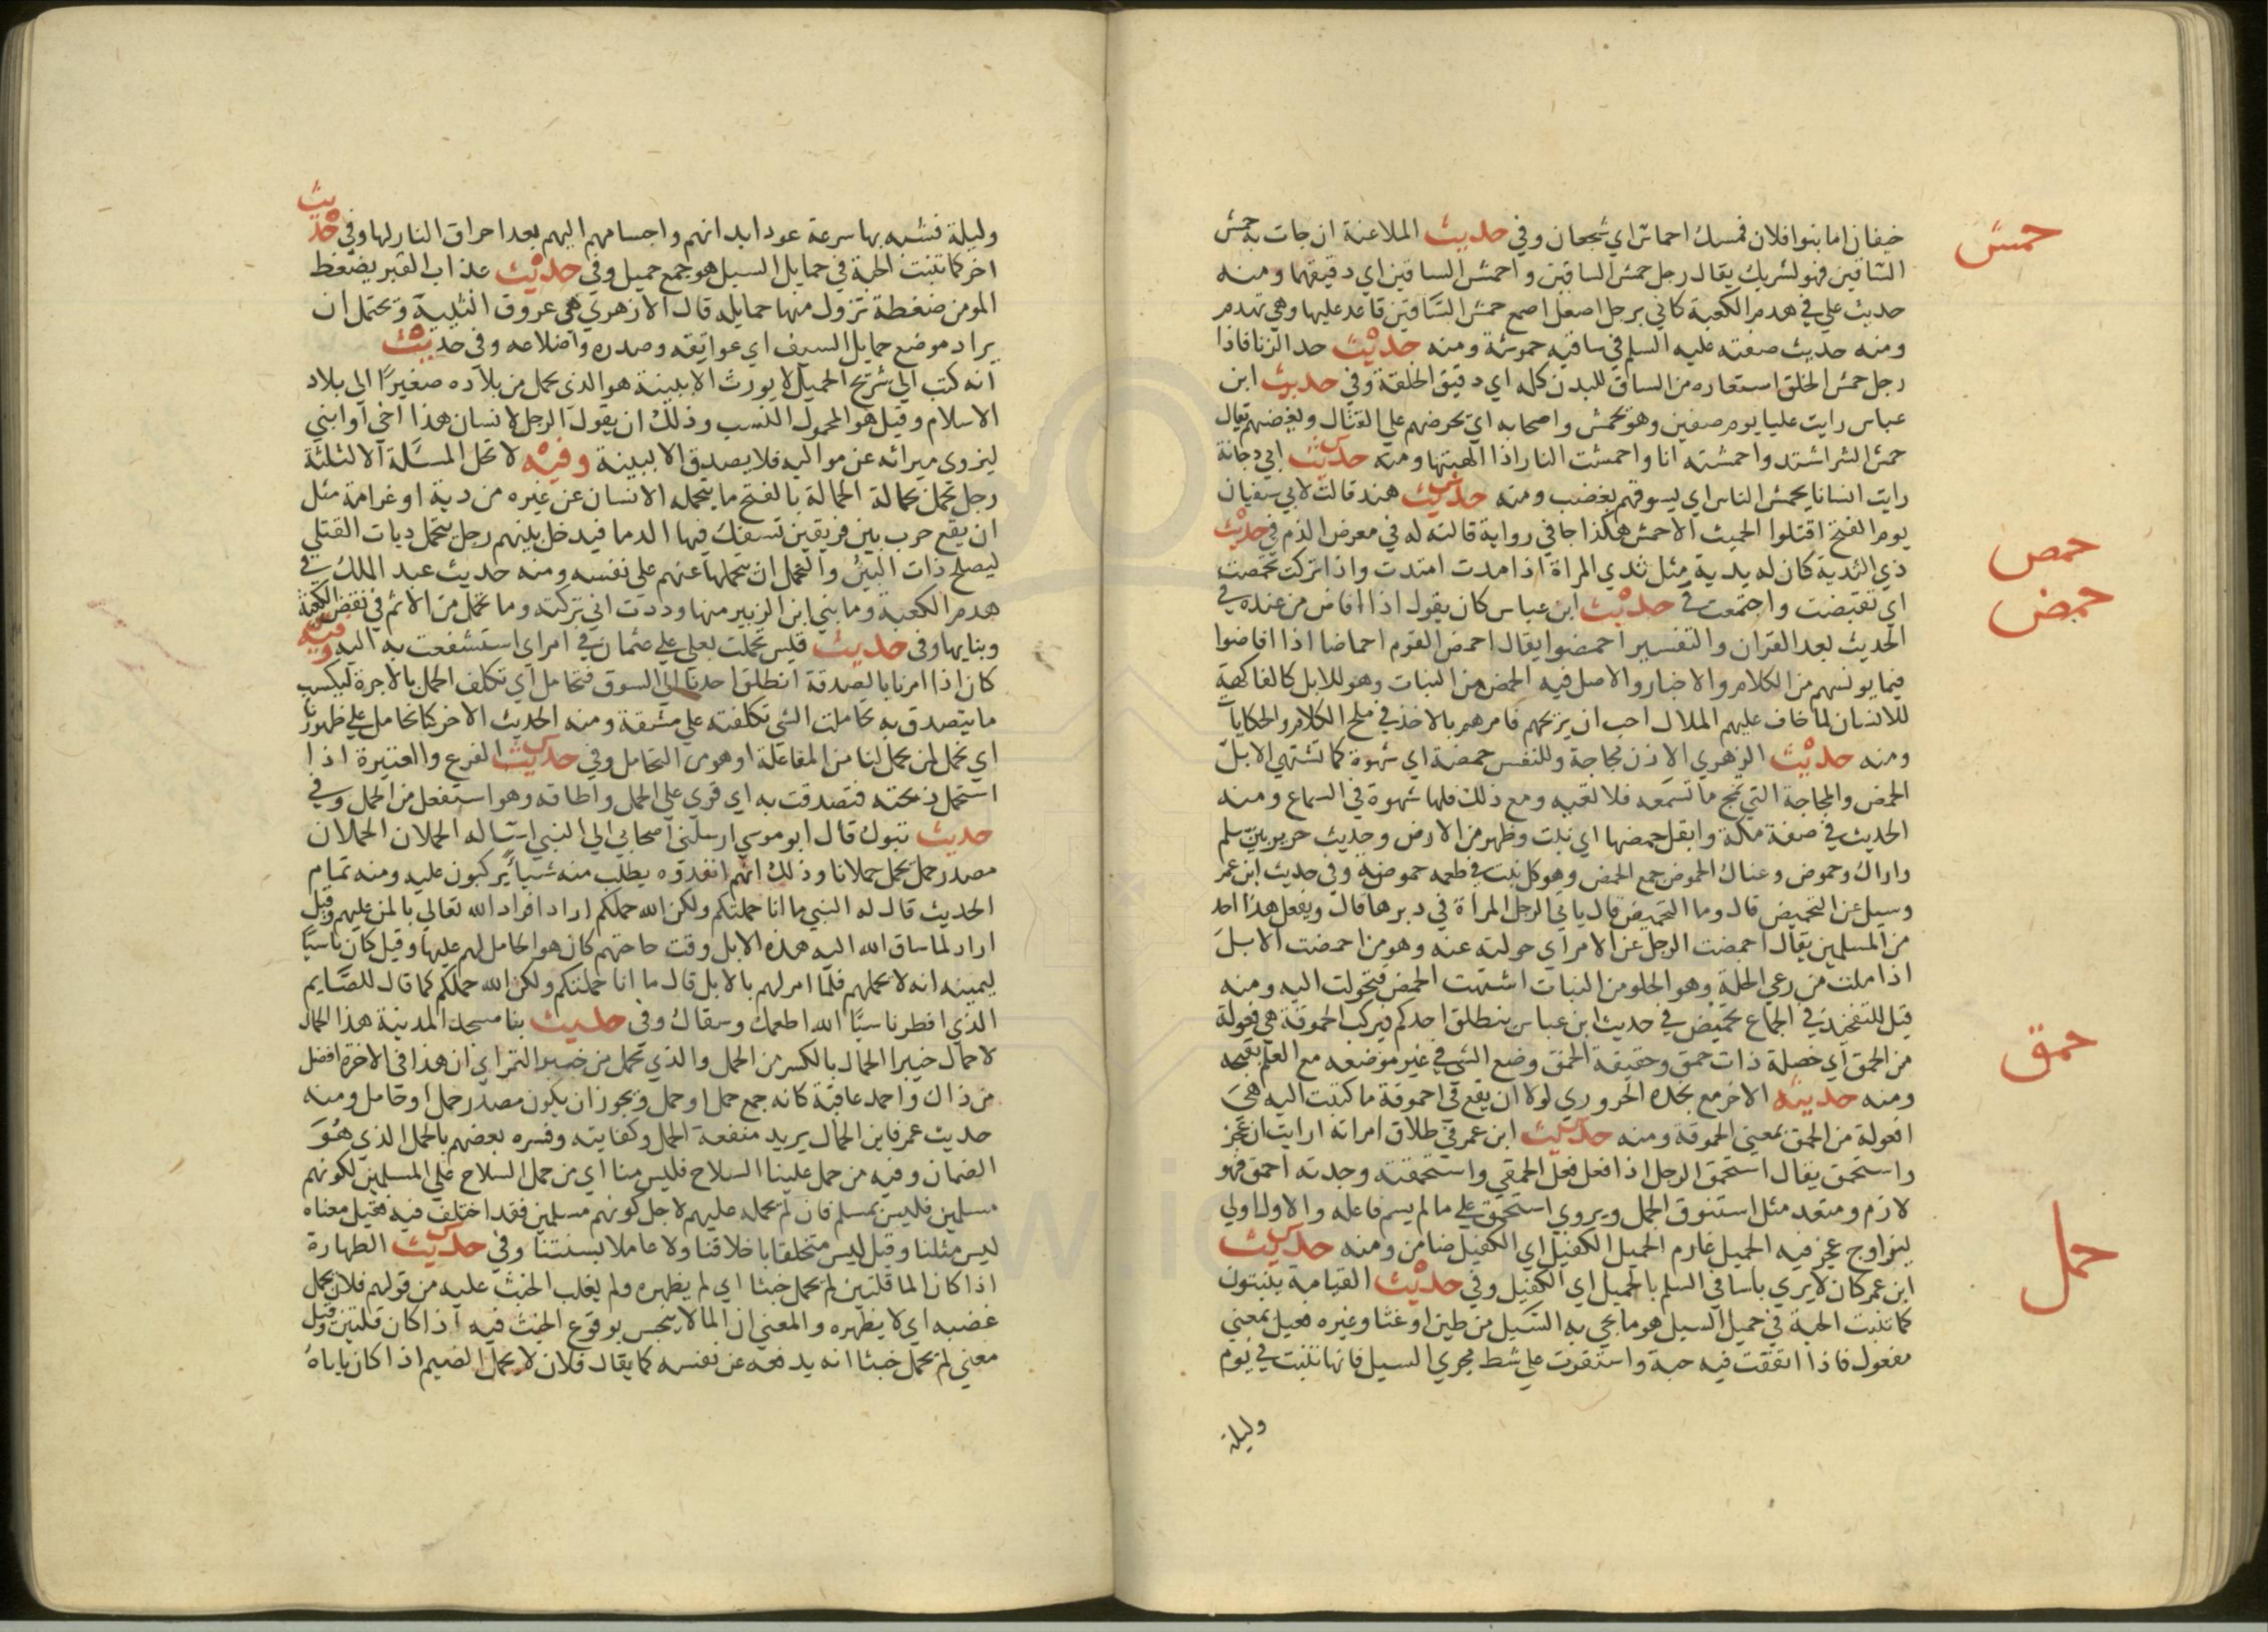 حمش
خيفان اما بنوا فلان فمسك احماس اي شجعان وفي حديث الملاعنة ان جات به حمش
الساقين فهو لشريك يقال رجل حمش الساقين واحمش الساقين اي دقيقهما ومنه
حديث علي في هدم الكعبة كاني برجل اصعل اصمع حمش الساقين قاعد عليها وهي تهدم
ومنه حديث صفته عليه السلم في ساقيه حموشة ومنه حديث حد الزنا فاذا
رجل حمش الخلق استعاره من الساق للبدن كله اي دقيق الخلقة وفي حديث ابن
عباس رايت عليا يوم صفين وهو يحمش واصحابه اي يحرضهم علي القتال ويغضبهم يقال
حمش الشر اشتد واحمشته انا واحمشت النار اذا الهبتها ومنه حديث ابي دجانة
رايت انسانا يحمش الناس اي يسوقهم بغضب ومنه حديث هند قالت لابي سفيان
يوم الفتح اقتلوا الحميت الاحمش هكذا جا في رواية قالته له في معرض الذم في حديث
حمص
ذي الثدية كان له يدية مثل ثدي المراة اذا مدت امتدت واذا تركت تحمصت
حمض
اي تقبضت واجتمعت في حديث ابن عباس كان يقول اذا افاض من عنده في
الحديث بعد القران والتفسير احمضوا يقال احمض القوم احماضا اذا افاضوا
فيما يونسهم من الكلام والاخبار والاصل فيه الحمض من النبات وهو للابل كالفاكهة
للانسان لما خاف عليهم الملال احب ان يريحهم فامرهم بالاخذ في ملح الكلام والحكايات
ومنه حديث الزهري الاذن مجاجة وللنفس حمضة اي شهوة كما تشتهي الابل
الحمض والمجاجة التي تمج ما تسمعه فلا تعيه ومع ذلك فلها شهوة في السماع ومنه
الحديث في صفة مكة وابقل حمضها اي نبت وظهر من الارض وحديث جرير بين سلم
واراك وحموض وعناك الحموض جمع الحمض وهو كل نبت في طعمه حموضة وفي حديث ابن عمر
وسيل عن التحميض قال وما التحميض قال ياتي الرجل المراة في دبرها قال ويفعل هذا احد
من المسلمين يقال احمضت الرجل عن الامر اي حولته عنه وهو من احمضت الابل
اذا ملت من رعي الخلة وهو الحلو من النبات اشتهت الحمض فتحولت اليه ومنه
حمق
قيل للتفخيذ في الجماع تحميض في حديث ابن عباس ينطلق احدكم فيركب الحموقة هي فعولة
من الحمق اي خصلة ذات حمق وحقيقة الحمق وضع الشي في غير موضعه مع العلم بقبحه
ومنه حديثه الاخر مع نجدة الحروري لولا ان يقع في احموقة ما كتبت اليه هي
افعولة من الحمق بمعني الحموقة ومنه حديث ابن عمر في طلاق امراته ارايت ان عجز
واستحمق يقال استحمق الرجل اذا فعل فعل الحمقي واستحمقته وجدته احمق فهو
لازم ومتعد مثل استنوق الجمل ويروي استحمق علي ما لم يسم فاعله والاول اولي
حمل
ليزاوج عجز فيه الحميل غارم الحميل الكفيل اي الكفيل ضامن ومنه حديث
ابن عمر كان لا يري باسا في السلم بالحميل اي الكفيل وفي حديث القيامة ينبتون
كما تنبت الحبة في حميل السيل هو ما يجي به السيل من طين او غثا وغيره فعيل بمعني
مفعول فاذا اتفقت فيه حبة واستقرت علي شط مجري السيل فانها تنبت في يوم
وليلة
وليلة فشبه بها سرعة عود ابدانهم واجسامهم اليهم بعد احراق النار لها وفي حديث
اخر كما تنبت الحبة في حمايل السيل هو جمع حميل وفي حديث عذاب القبر يضغط
المومن ضغطة تزول منها حمايله قال الازهري هي عروق انثييه ويحتمل ان
يراد موضع حمايل السيف اي عواتقه وصدره واضلاعه وفي حديث
انه كتب الي شريح الحميل لا يورث الا ببينة هو الذي يحمل من بلاده صغيرا الي بلاد
الاسلام وقيل هو المحمول النسب وذلك ان يقول الرجل لانسان هذا اخي او ابني
ليزوي ميراثه عن مواليه فلا يصدق الا ببينة وفيه لا تحل المسئلة الا لثلثة
رجل تحمل بحمالة الحمالة بالفتح ما يتحمله الانسان عن غيره من دية او غرامة مثل
ان يقع حرب بين فريقين تسفك فيها الدما فيدخل بينهم رجل يتحمل ديات القتلي
ليصلح ذات البين والتحمل ان يتحملها عنهم علي نفسه ومنه حديث عبد الملك في
هدم الكعبة وما بني ابن الزبير منها وددت اني تركته وما تحمل من الاثم في نقض الكعبة
وبنايها وفي حديث قيس تحملت بعلي علي عثمان في امر اي استشفعت به اليه وفيه
كان اذا امرنا بالصدقة انطلق احدنا الي السوق فتحامل اي تكلف الحمل بالاجرة ليكسب
ما يتصدق به تحاملت الشي تكلفته علي مشقة ومنه الحديث الاخر كنا نحامل علي ظهورنا
اي نحمل لمن يحمل لنا من المفاعلة او هو من التحامل وفي حديث الفرع والعتيرة اذا
استحمل ذبحته فتصدقت به اي قوي علي الحمل واطاقه وهو استفعل من الحمل وفي
حديث تبوك قال ابو موسي ارسلني اصحابي الي النبي اساله الحملان الحملان
مصدر حمل يحمل حملانا وذلك انهم انفذوه يطلب منه شيا يركبون عليه ومنه تمام
الحديث قال له النبي ما انا حملتكم ولكن الله حملكم اراد افراد الله تعالي بالمن عليهم وقيل
اراد لما ساق الله اليه هذه الابل وقت حاجتهم كان هو الحامل لهم عليها وقيل كان ناسيا
ليمينه انه لا يحملهم فلما امر لهم بالابل قال ما انا حملتكم ولكن الله حملكم كما قال للصايم
الذي افطر ناسيا الله اطعمك وسقاك وفي حديث بنا مسجد المدينة هذا الحمال
لا حمال خيبر الحمال بالكسر من الحمل والذي تحمل من خيبر التمر اي ان هذا في الاخرة افضل
من ذاك واحمد عاقبة كانه جمع حمل او حمل ويجوز ان يكون مصدر حمل او حامل ومنه
حديث عمر فاين الحمال يريد منفعة الحمل وكفايته وفسره بعضهم بالحمل الذي هو
الضمان وفيه من حمل علينا السلاح فليس منا اي من حمل السلاح علي المسلمين لكونهم
مسلمين فليس بمسلم فان لم يحمله عليهم لاجل كونهم مسلمين فقد اختلف فيه فقيل معناه
ليس مثلنا وقيل ليس متخلقا باخلاقنا ولا عاملا بسنتنا وفي حديث الطهارة
اذا كان الما قلتين لم يحمل خبثا اي لم يظهره ولم يغلب الخبث عليه من قولهم فلان يحمل
غضبه اي لا يظهره والمعني ان الما لا ينجس بوقوع الخبث فيه اذا كان قلتين وقيل
معني لم يحمل خبثا انه يدفعه عن نفسه كما يقال فلان لا يحمل الضيم اذا كان ياباه